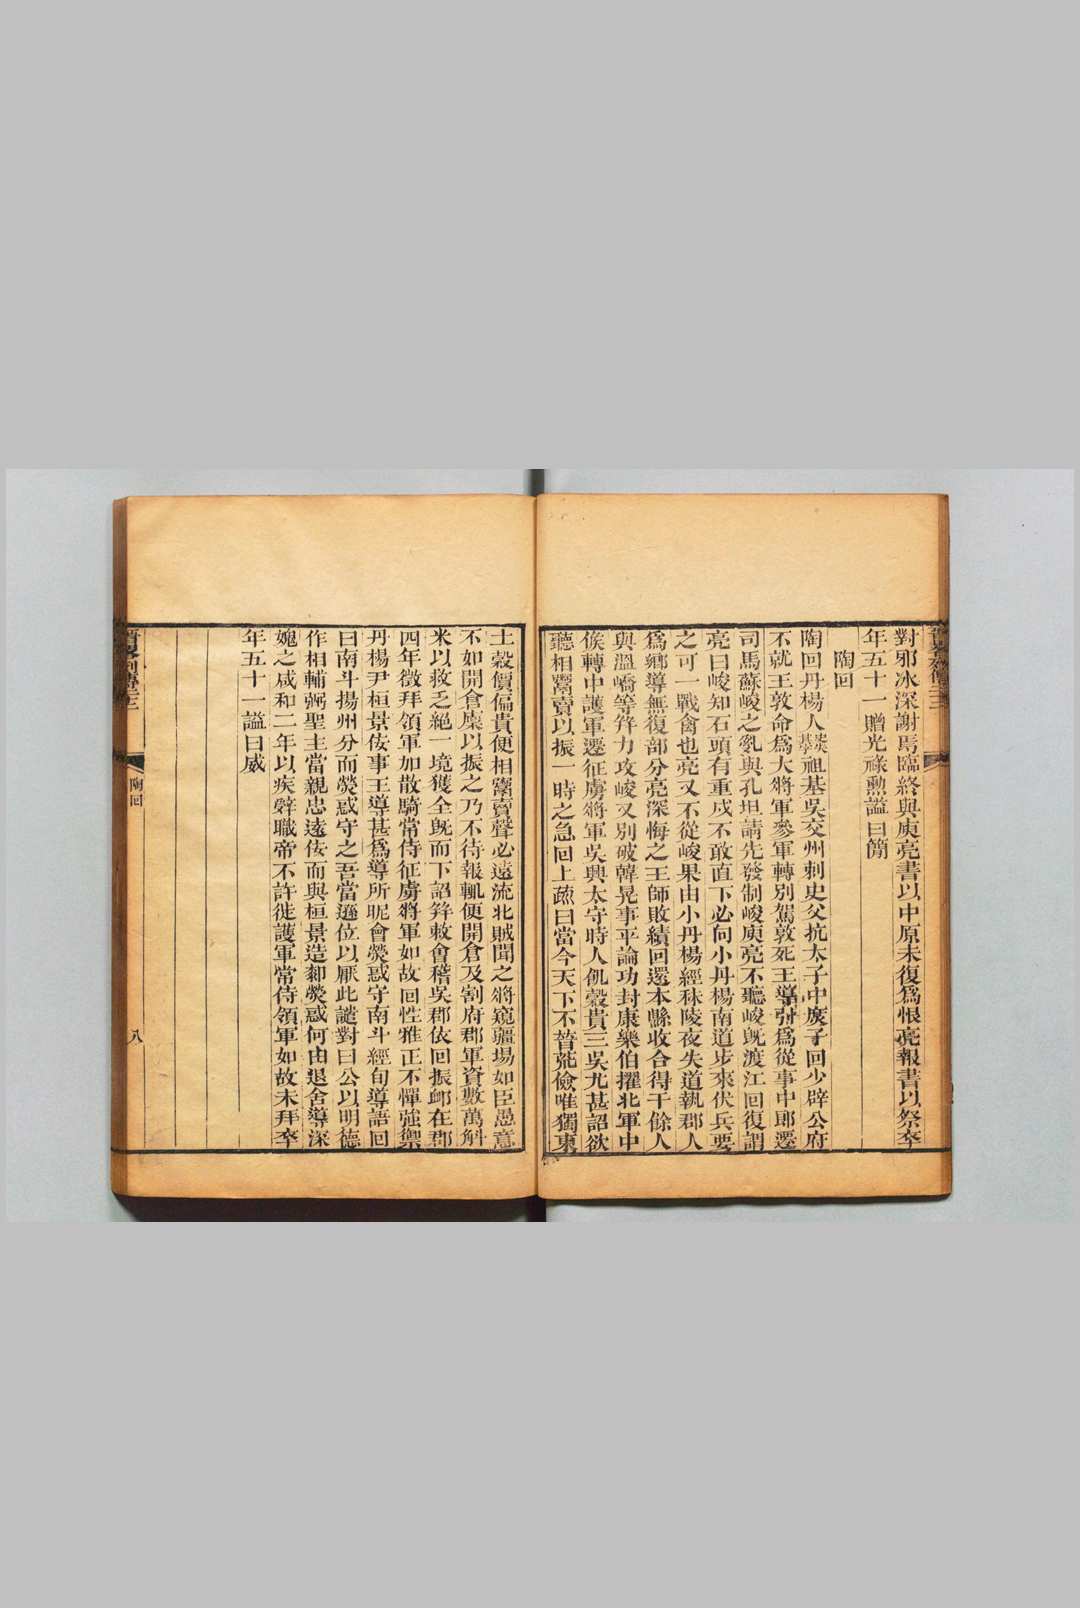 對邪冰深謝焉臨終與庾亮書以中原未復爲恨亮報書以祭卒
年五十一贈光祿勲謚曰簡
陶回
陶回丹楊人祖基吳交州刺史父抗太子中庶子回少辟公府
不就王敦命爲大將軍參軍轉別駕敦死王導引爲從事中郎遷
司馬蘇峻之亂與孔坦請先發制峻庾亮不聽峻旣渡江回復謂
亮曰峻知石頭有重戍不敢直下必向小丹楊南道步來伏兵要
之可一戰禽也亮又不從峻果由小丹楊經秣陵夜失道執郡人
爲鄉導無復部分亮深悔之王師敗績回還本縣收合得千餘人
與溫嶠等幷力攻峻又別破韓晃事平論功封康樂伯擢北軍中
候轉中護軍遷征虜將軍吳興太守時人飢穀貴三吳尤甚詔欲
聽相鬻賣以振一時之急回上疏曰當今天下不普荒儉唯獨東
土穀價偏貴便相鬻賣聲必遠流北賊聞之將窺疆埸如臣愚意
不如開倉廩以振之乃不待報輒便開倉及割府郡軍資數萬斛
米以救乏絕一境獲全旣而下詔幷敕會稽吳郡依回振卹在郡
四年徵拜領軍加散騎常侍征虜將軍如故回性雅正不憚強禦
丹楊尹桓景佞事王導甚爲導所昵會熒惑守南斗經旬導語回
曰南斗揚州分而熒惑守之吾當遜位以厭此譴對曰公以明德
作相輔弼聖主當親忠遠佞而與桓景造䣛熒惑何由退舍導深
媿之咸和二年以疾辭職帝不許徙護軍常侍領軍如故未拜卒
年五十一謚曰威
陶回
八